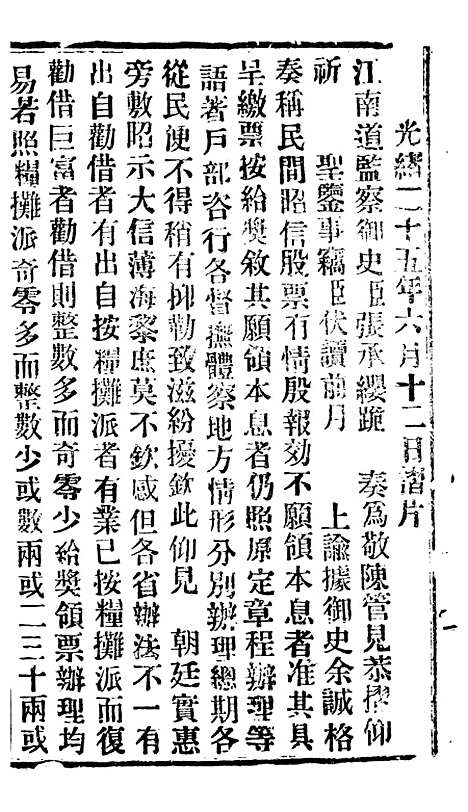 光緒二十五年六月十二日諮片
江南道監察御史臣張承纓跪　奏爲敬陳管見恭摺仰
祈　聖鑒事竊臣伏讀前月　上諭據御史余誠格
奏稱民間昭信股票有情殷報効不願領本息者准其具
呈繳票按給獎敘其願領本息者仍照原定章程辦理等
語著戶部咨行各督撫體察地方情形分別辦理總期各
從民便不得稍有抑勒致滋紛擾欽此仰見　朝廷實惠
旁敷昭示大信薄海黎庶莫不欽感但各省辦法不一有
出自勸借者有出自按糧攤派者有業已按糧攤派而復
勸借巨富者勸借則整數多而奇零少給獎領票辦理均
易若照糧攤派奇零多而整數少或數兩或二三十兩或